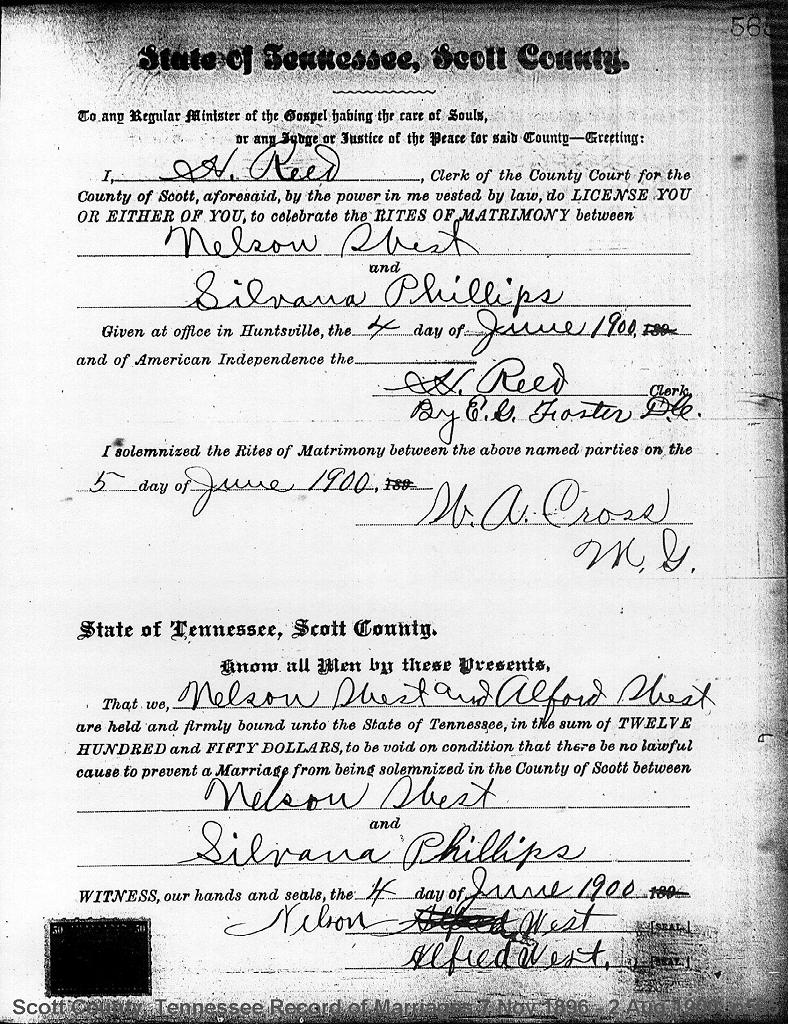 State of Tennessee, Scott County.
To any Regular Minister of the Gospel having the care of Souls,
or any Judge or Justice of the Peace for said County—Greeting:
I, H. Reed, Clerk of the County Court for the
County of Scott, aforesaid, by the power in me vested by law, do LICENSE YOU
OR EITHER OF YOU, to celebrate the RITES OF MATRIMONY between
Nelson West
and
Silvana Phillips
Given at office in Huntsville, the 4 day of June 1900, 189
and of American Independence the
H. Reed Clerk
By E. G. Foster D.C.
I solemnized the Rites of Matrimony between the above named parties on the
5 day of June 1900, 189
W. A. Cross
M. G.
State of Tennessee, Scott County.
Know all Men by these Presents,
That we, Nelson West and Alford West
are held and firmly bound unto the State of Tennessee, in the sum of TWELVE
HUNDRED and FIFTY DOLLARS, to be void on condition that there be no lawful
cause to prevent a Marriage from being solemnized in the County of Scott between
Nelson West
and
Silvana Phillips
WITNESS, our hands and seals, the 4 day of June 1900 189
Nelson West [SEAL.]
Alfred West. [SEAL.]
Scott County, Tennessee Record of Marriages 7 Nov 1896 - 2 Aug